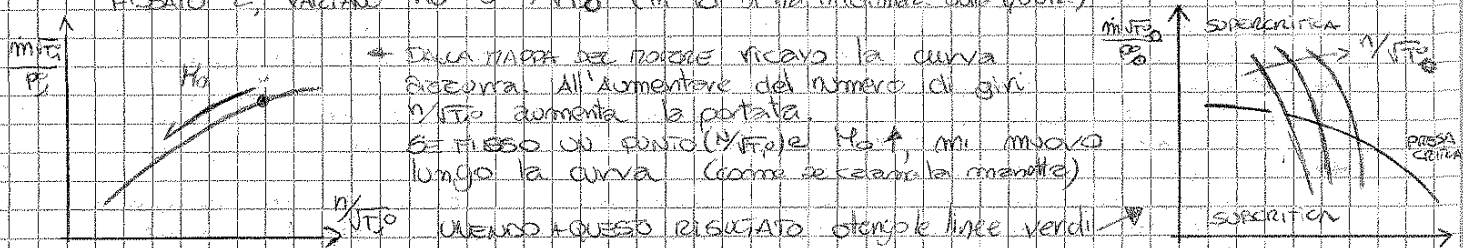 FISSATO Z, VARIANO M0 e n/√T°0
ṁ√T°1
p°1
M0
n/√T1°
← DALLA MAPPA DEL MOTORE ricavo la curva
azzurra. All'Aumentare del numero di giri
n/√T1° aumenta la portata.
SE FISSO UN PUNTO (N/√T1°) e M0↑, mi muovo
lungo la curva (come se calano la manetta)
UNENDO + QUESTO RISULTATO ottengo le linee verdi
ṁ√T°0
p°0
SUPERCRITICA
n/√T°0
PRESA
CRITICA
SUBCRITICA